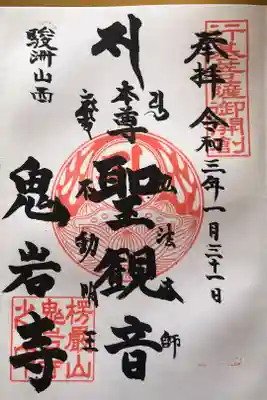 奉拝 令和三年一月三十一日
行基菩薩御開創
弘法大師
本尊聖観音
不動明王
駿洲山西
鬼岩寺
楞厳山